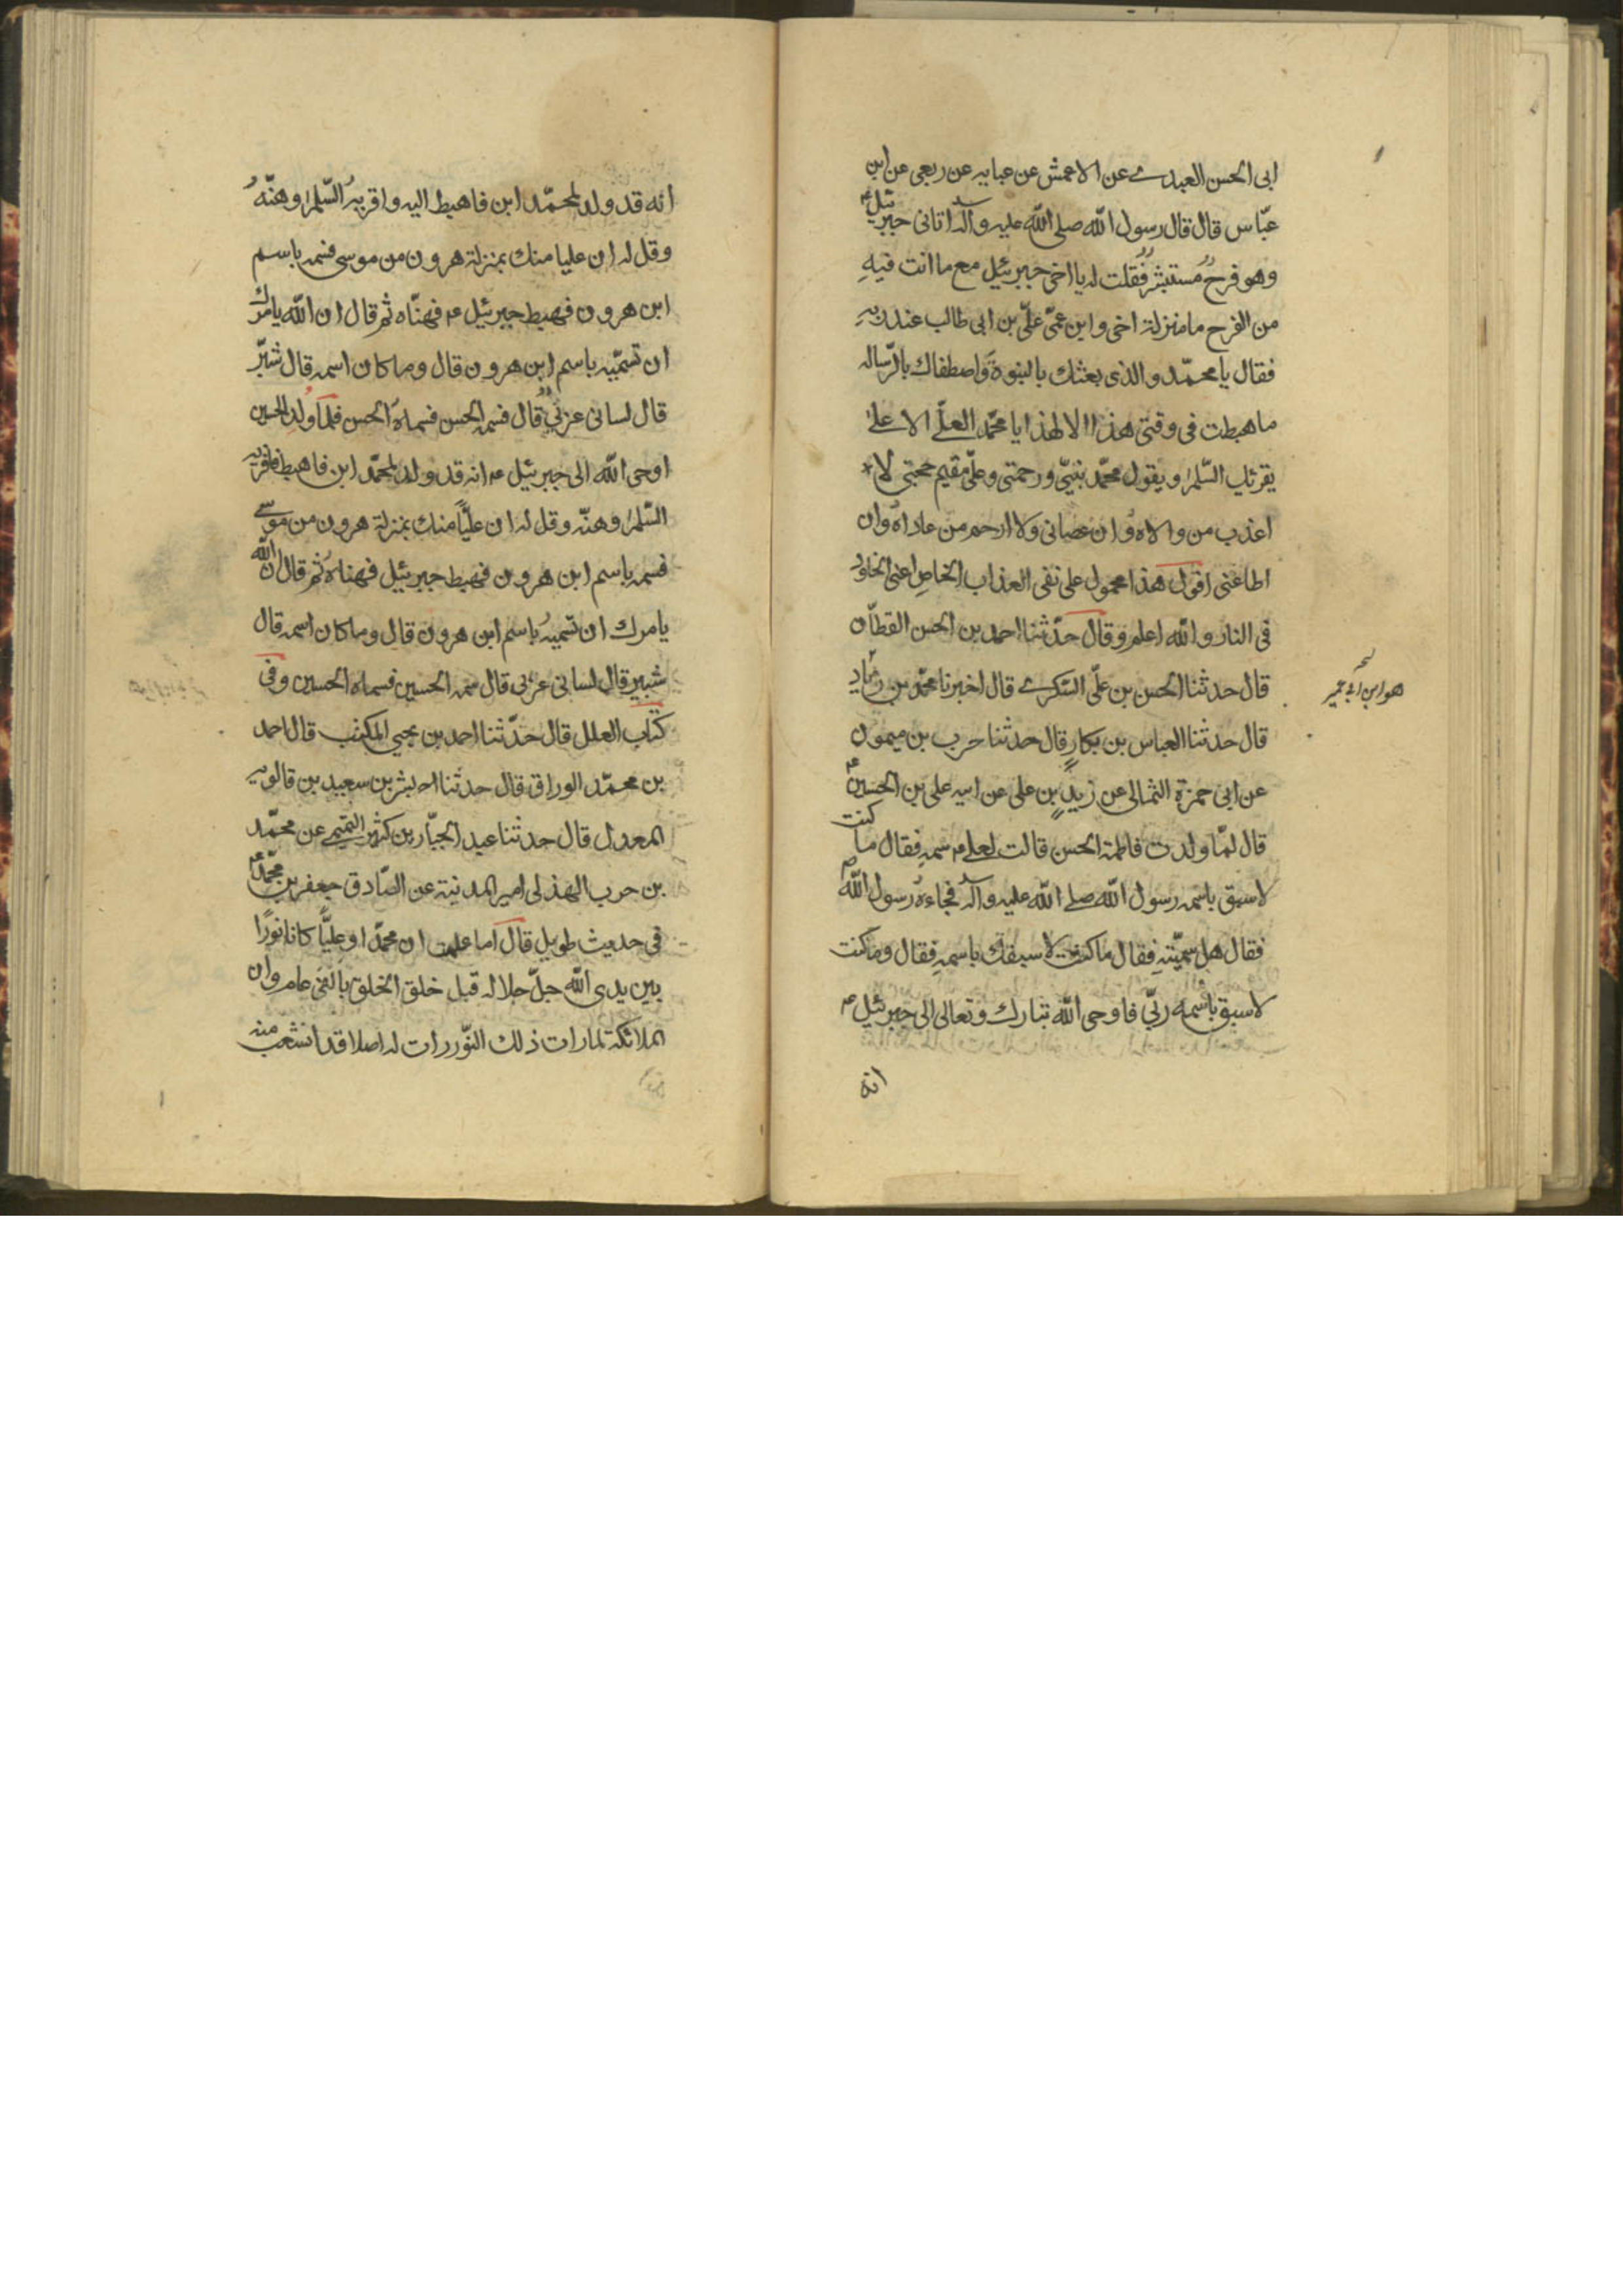 ابى الحسن العبدے عن الاعمش عن عبايه عن ربعى عن ابن
عبّاس قال قال رسول الله صلى الله عليه وآله اتانى جبرئيل ع
وهو فرحٌ مستبشرٌ فقلت له يا اخى جبرئيل مع ما انت فيهِ
من الفرح ما منزلة اخى وابن عمّى علىّ بن ابى طالب عند ربهِ
فقال يا محمّد والذى بعثك بالنبوة واصطفاك بالرّساله
ما هبطت فى وقتى هذا الا لهذا يا محمّد العلّے الاعلے
يقرئك السّلم ويقول محمّد نبيّى ورحمتى وعلىّ مقيم حجتى لا
اعذب من والاه وان عصانى ولا ارحم من عاداه وان
اطاعنى اقول هذا محمول على نفى العذاب الخاص اعنى الخلود
فى النار والله اعلم وقال حدّثنا احمد بن الحسن القطّان
قال حدثنا الحسن بن علىّ السّكرے قال اخبرنا محمّد بن زياد
هو ابن ابى عمير
قال حدثنا العباس بن بكار قال حدثنا حرب بن ميمون
عن ابى حمزة الثمالى عن زيد بن على عن ابيه على بن الحسين ع
قال لمّا ولدت فاطمة الحسن قالت لعلے ع سمهِ فقال ما كنت
لاسبق باسمه رسول الله صلے الله عليه وآله فجاءه رسول الله ص
فقال هل سمّيتهِ فقال ما كنت لاسبقك باسمهِ فقال وما كنت
لاسبق باسمه ربّى فاوحى الله تبارك وتعالى الى جبرئيل ع
انه
انه قد ولد لمحمّد ابن فاهبط اليه واقريه السّلم وهنّه
وقل له ان عليا منك بمنزلة هرون من موسى فسمه باسم
ابن هرون فهبط جبرئيل ع فهنّاه ثم قال ان الله يامرك
ان تسمّيه باسم ابن هرون قال وما كان اسمه قال شبّر
قال لسانى عربىٌ قال فسمه الحسن فسماه الحسن فلما ولد الحسين
اوحى الله الى جبرئيل ع انه قد ولد لمحمّد ابن فاهبط فاقريه
السّلم وهنّه وقل له ان عليّاً منك بمنزلة هرون من موسے
فسمه باسم ابن هرون فهبط جبرئيل فهناه ثم قال ان الله
يامرك ان تسميه باسم ابن هرون قال وما كان اسمه قال
شبير قال لسانى عربى قال سمه الحسين فسماه الحسين وفى
كتاب العلل قال حدّثنا احمد بن يحيى المكتب قال احمد
بن محمّد الوراق قال حدثنا بشر بن سعيد بن قالويه
المعدل قال حدثنا عبد الجبّار بن كثير التميمے عن محمّد
بن حرب الهذلى امير المدنية عن الصّادق جعفر بن محمّد ع
فى حديث طويل قال اما علمت ان محمّدا وعليّاً كانا نورًا
بين يدى الله جلّ جلاله قبل خلق الخلق بالفى عام وان
الملائكة لما رات ذلك النّور رات له اصلا قد انشعب منه